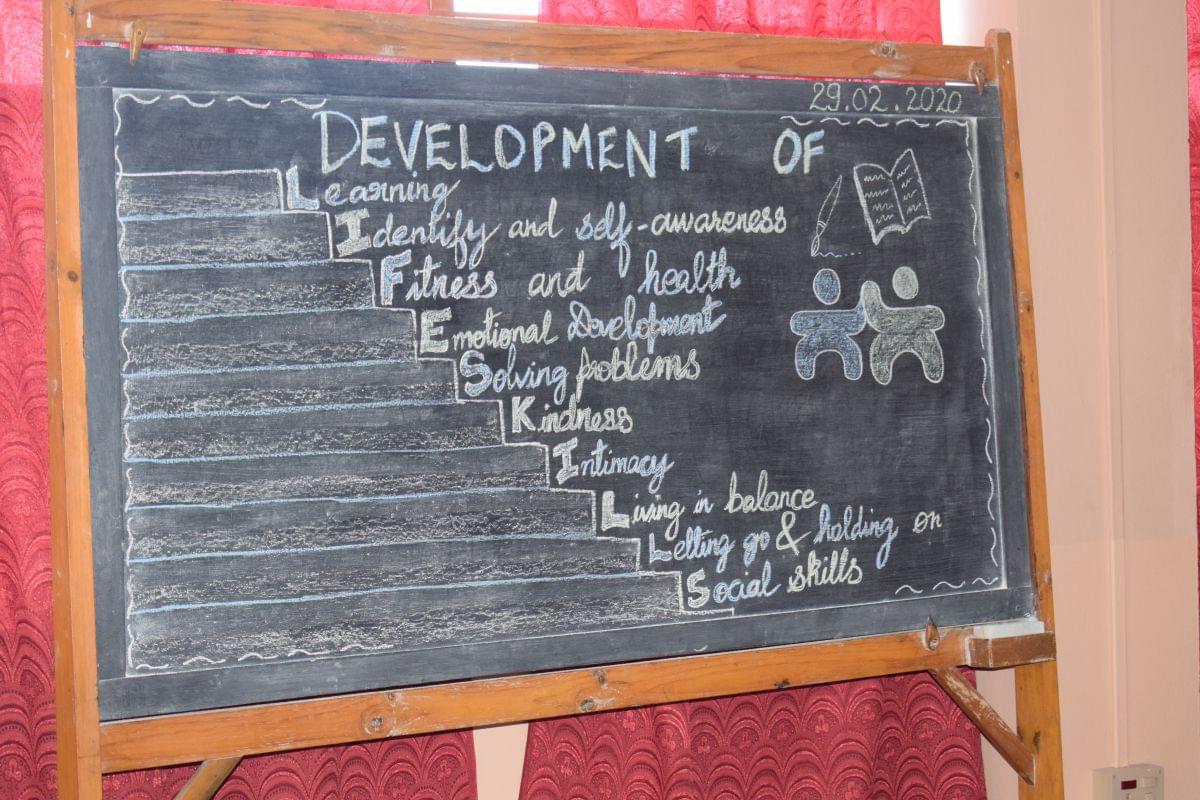 29.02.2020
DEVELOPMENT OF
Learning
Identify and self-awareness
Fitness and health
Emotional Development
Solving problems
Kindness
Intimacy
Living in balance
Letting go & holding on
Social skills